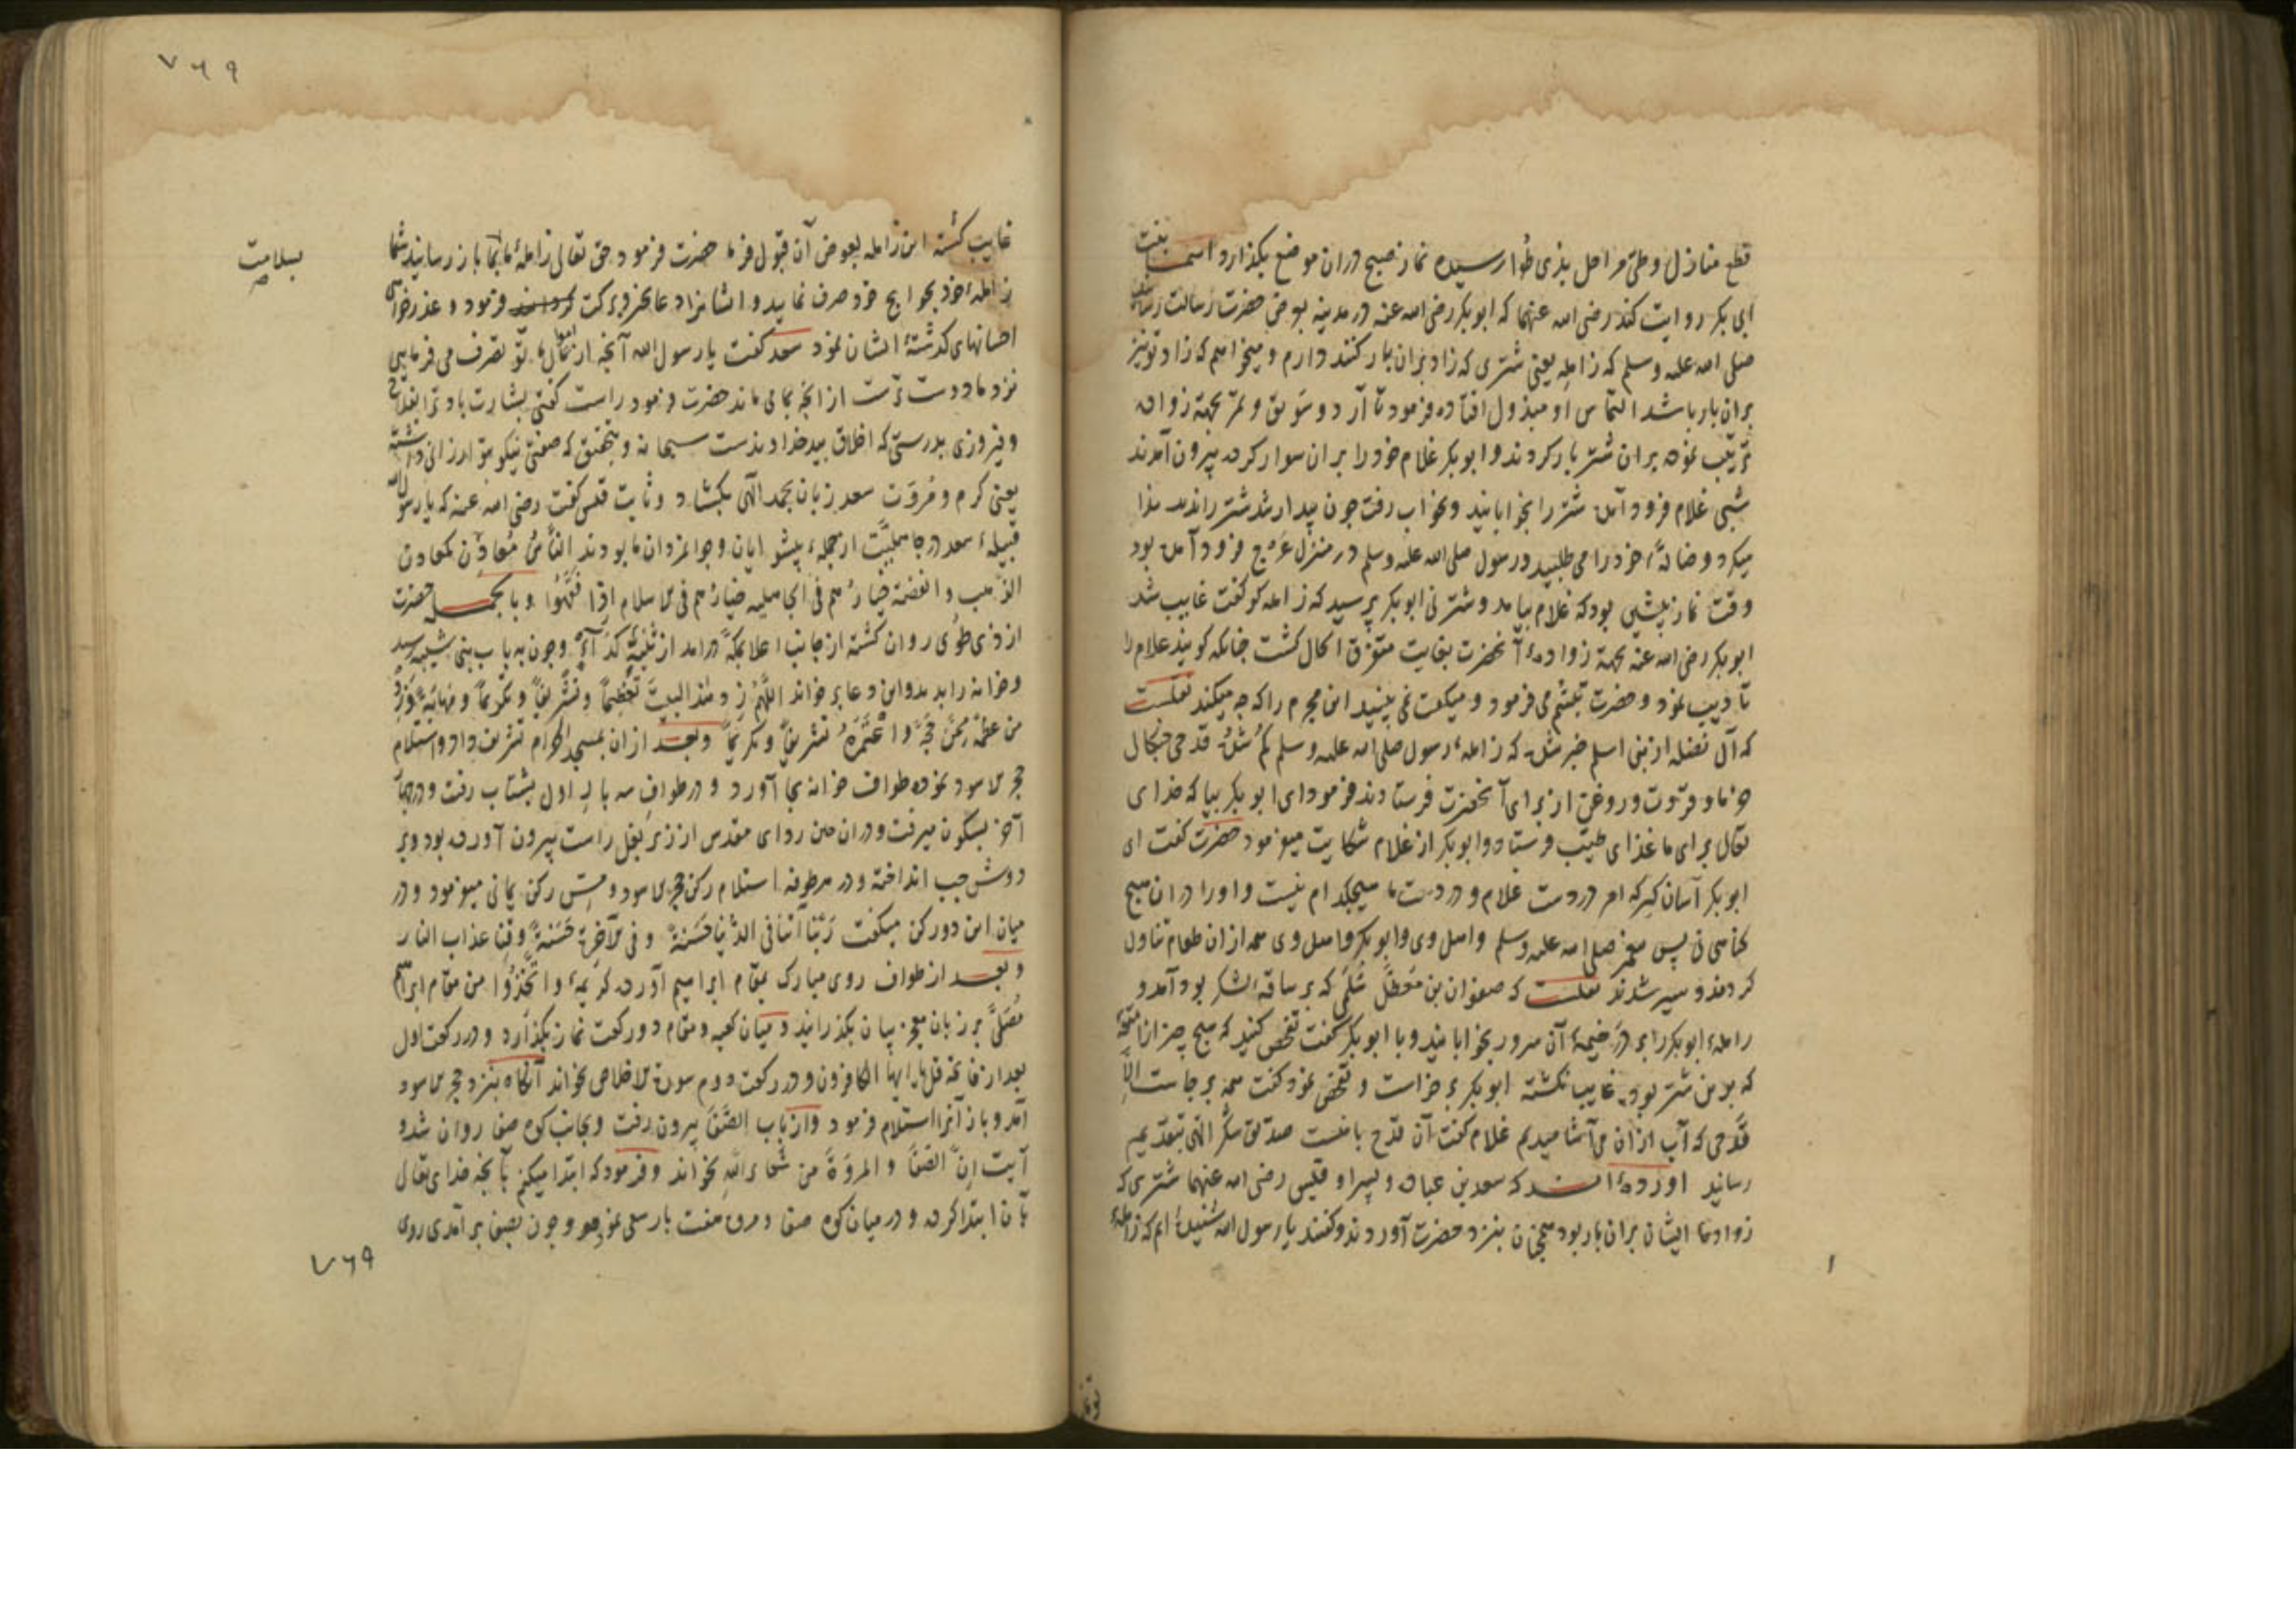 قطع منازل و طی مراحل بذی طُوا رسیده نماز صبح دران موضع بکذارد اسما بنت
ابی بکر روایت کند رضی الله عنهما که ابوبکر رضی الله عنه در مدینه بعرض حضرت رسالت رسانید
صلی الله علیه وسلم که زامله یعنی شتری که زاد بران بار کنند دارم و میخواهم که زاد تو نیز
بران بار باشد التماس او مبذول افتاده فرمود تا آرد و سَویق و تمر بجهة زواده
ترتیب نموده بران شتر بار کردند و ابوبکر غلام خود را بران سوار کرده بیرون آمدند
شبی غلام فرود آمده شتر را بخوابانید و بخواب رفت جون بیدار شد شتر را ندید ندا
میکرد و ضالّهٔ خود را می طلبید و رسول صلی الله علیه وسلم در منزل عَرْج فرود آمده بود
وقت نماز بیشین بود که غلام بیامد و شتر نی ابوبکر پرسید که زامله کو کفت غایب شد
ابوبکر رضی الله عنه بجهة زوادهٔ آنحضرت بغایت متفرق اکال کشت جنانکه کویند غلام را
تادیب نمود و حضرت تبسّم می فرمود و میکفت نمی بینید این محرم را که جه میکند نقلست
که آل نضله از بنی اسلم خبر شد که زاملهٔ رسول صلی الله علیه وسلم کم شد قدحی جنکال
خرما و قروت و روغن از برای آنحضرت فرستادند فرمود ای ابوبکر بیا که خدای
تعالی برای ما غذای طیّب فرستاد و ابوبکر از غلام شکایت میفرمود حضرت کفت ای
ابوبکر آسان کیر که امر در دست غلام و در دست ما هیجکدام نیست و او را دران هیج
کناهی نی پس پیغمبر صلی الله علیه وسلم و اهل وی و ابوبکر و اهل وی همه ازان طعام تناول
کردند و سیر شدند نقلست که صفوان بن مُعَطَّل سُلَمی که بر ساقهٔ لشکر بود آمد و
راملهٔ ابوبکر را بر در خیمهٔ آن سرور بخوابانید و با ابوبکر کفت تفحص کنید که هیج چیز از امتعهٔ
که برین شتر بوده غایب نکشته ابوبکر برخاست و تفحص نمود کفت همه برجاست الّا
قدحی که آب ازان می آشامیدیم غلام کفت آن قدح با منست صدّیق شکر الهی بتقدیم
رسانید آورده اند که سعد بن عباده و پسر او قیس رضی الله عنهما شتری که
زوادهٔ ایشان بران بار بود همجنان بنزد حضرت آوردند و کفتند یا رسول الله شنیده ایم که زامله
۷۶۹
غایب کشته این زامله بعوض آن قبول فرما حضرت فرمود حق تعالی زاملهٔ ما بما باز رسانید شما
زاملهٔ خود بحوایج خود صرف نمایید و ایشانرا دعا بخیر و برکت فرمود و عذر خواهی
احسانهای کذشتهٔ ایشان نمود سعد کفت یا رسول الله آنجه از اموال ما تو تصرف می فرمایی
نزد ما دوست ترست از انجه بما می ماند حضرت فرمود راست کفتی بشارت باد ترا بفلاح
و فیروزی بدرستی که اخلاق بید خداوندست سبحانه و بتحقیق که صفتی نیکو بتو ارزانی داشته
یعنی کرم و مُروّت سعد زبان بحمد الٰهی بکشاد و ثابت قیس کفت رضی الله عنه که یا رسول الله
قبیلهٔ سعد در جاهلیّت از جملهٔ پیشوایان و جوانمردان ما بودند الناسُ مُعادن کمعادن
الذّهب و الفضة خیارُهم فی الجاهلیه خیارُهم فی الاسلام اذا فَقُهوا و بالجمله حضرت
از ذی طُوی روان کشته از جانب اعلا بمکّه درامد از ثَنِیَّهٔ کَدَآءِ و جون به باب بنی شیبه رسید
و خانه را بدید و این دعا بر خواند اللّٰهُمّ زد هٰذا البیت تعظیماً و تشریفاً و تکریماً و مَهابَةً و زد
من عظّمَهُ ممّن حَجَّهُ و اعْتَمَرَهُ تشریفاً و تکریماً و بعد ازان بمسجد الحرام تشریف داد و استلام
حجر الاسود نموده طواف خانه بجا آورد و در طوافِ سه بارِ اول بشتاب رفت و در چهار
آخر بسکون میرفت و دران حین ردای مقدس از زیر بغل راست بیرون آورده بود و بر
دوش جب انداخته و در هر طوفه استلام رکن حجر الاسود و مسّ رکن یمانی میفرمود و در
میان این دو رکن میکفت رَبّنا آتنا فی الدّنیا حَسَنةً و فی الآخِرَة حَسَنَةً وقِنا عذاب النار
و بعد از طواف روی مبارک بمقام ابراهیم آورده کریمهٔ و اتّخذُوا من مقام ابراهیم
مُصَلّیً بر زبان معجز بیان بکذرانید و میان کعبه و مقام دو رکعت نماز بکذارد و در رکعت اول
بعد از فاتحه قل یا ایها الکافرون و در رکعت دوم سورة الاخلاص بخواند آنکاه بنزد حجر الاسود
آمد و باز آنرا استلام فرمود و از باب الصّفا بیرون رفت و بجانب کوه صفا روان شد و
آیت اِنّ الصّفا و المروةَ من شعائراللّٰه بخواند و فرمود که ابتدا میکنم بآنجه خدای تعالی
بآن ابتدا کرده و در میان کوه صفا و مروه هفت بار سعی نمود و جون بصفا بر آمدی روی
بسلامت
صح
۷۶۹